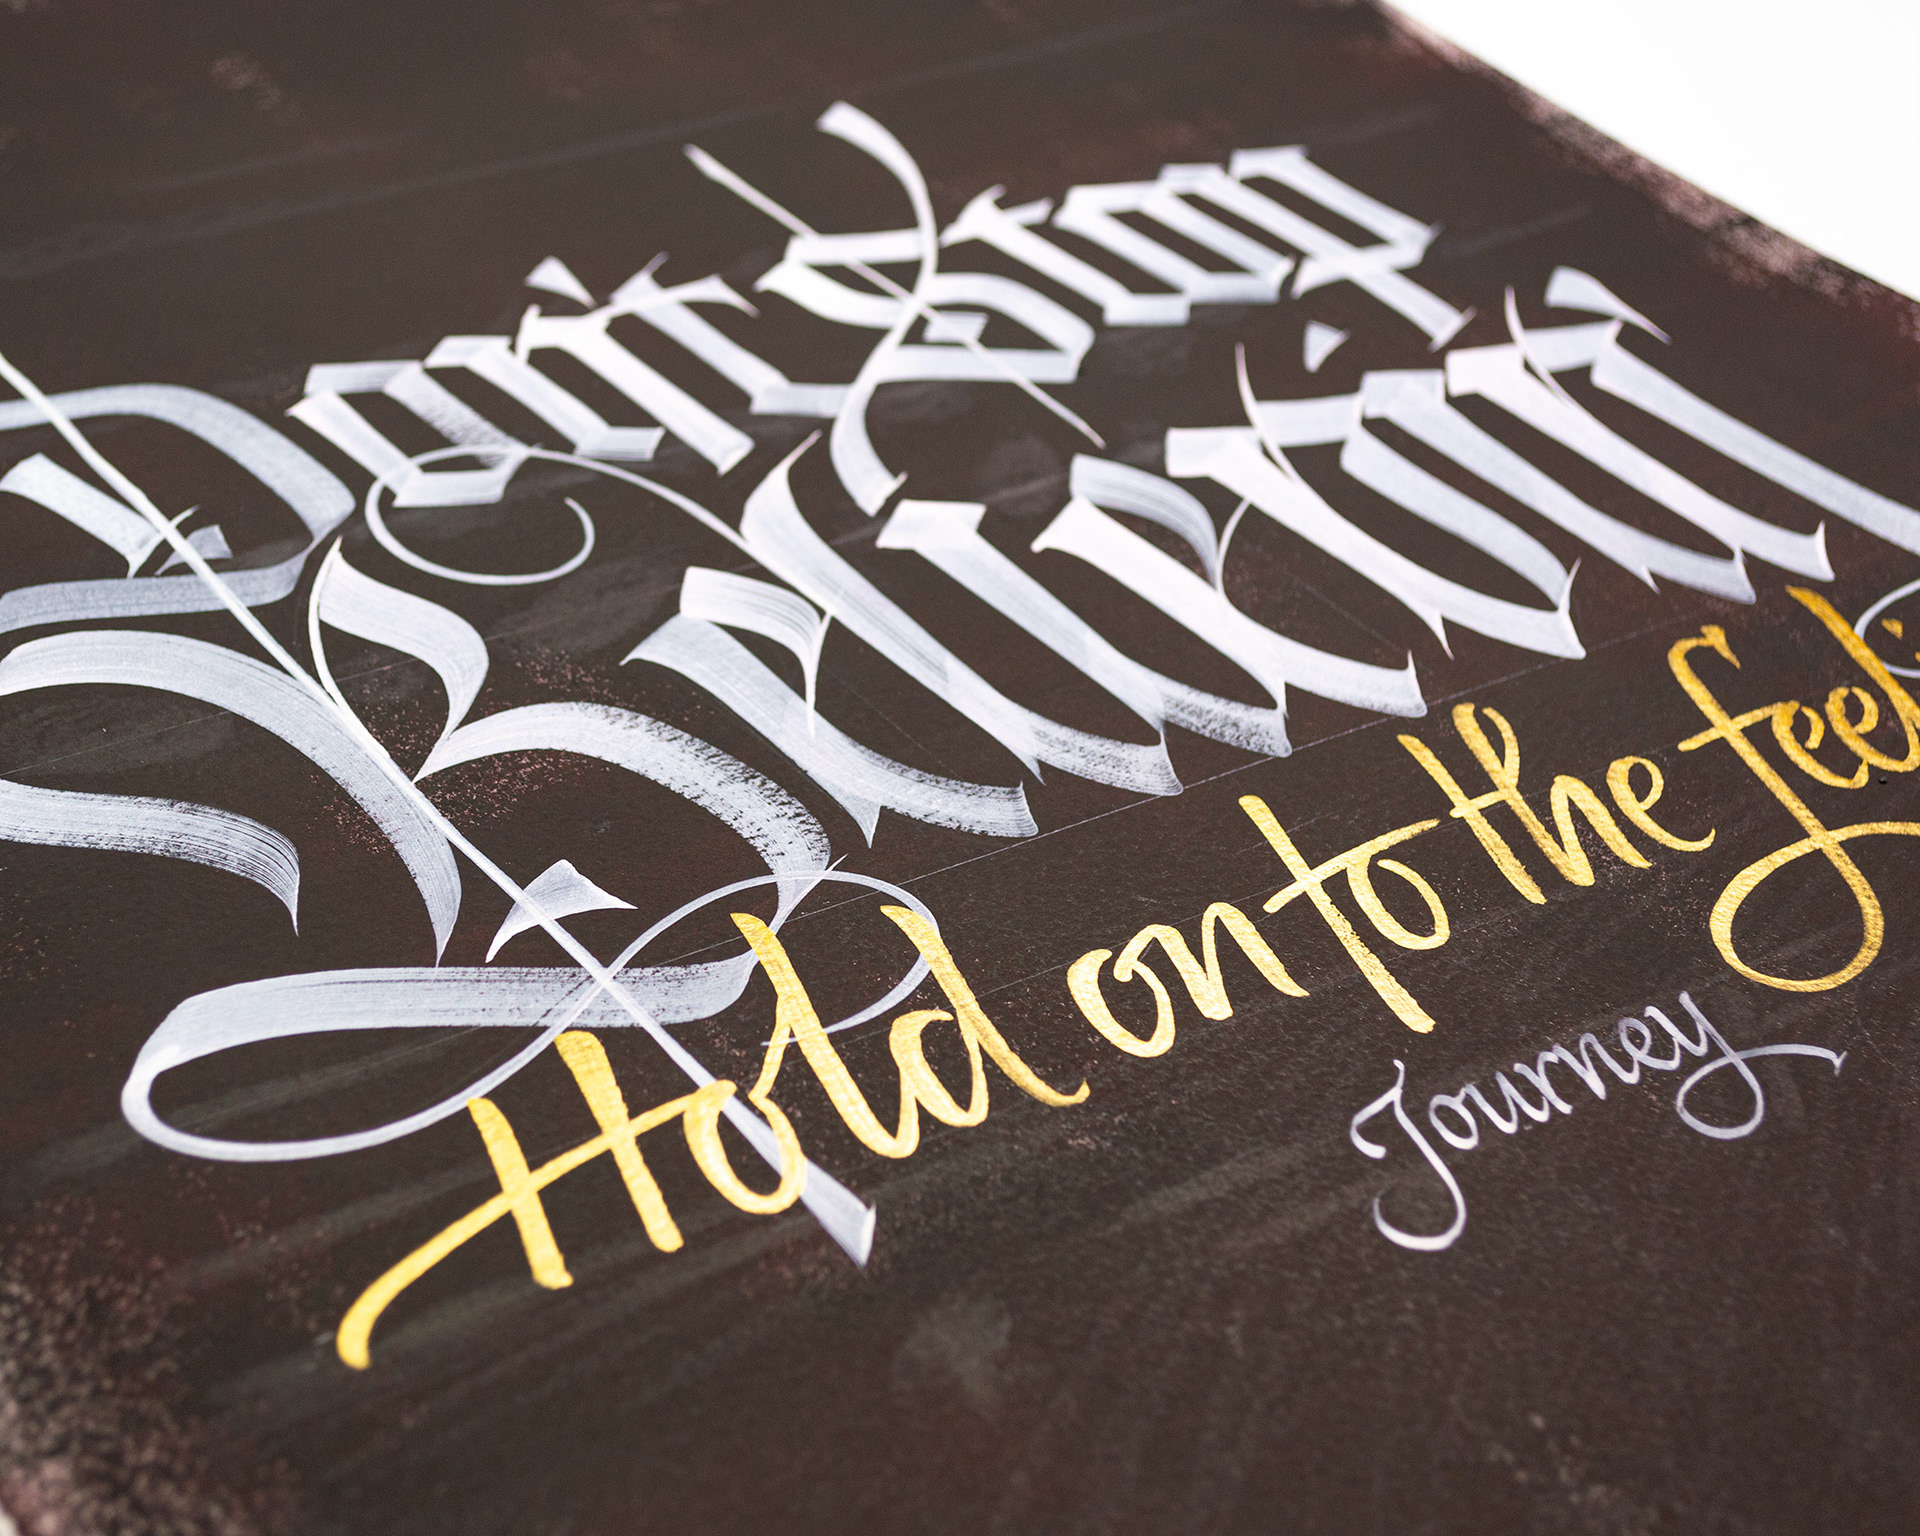 Don't Stop
Believin'
Hold on to the feeli
Journey